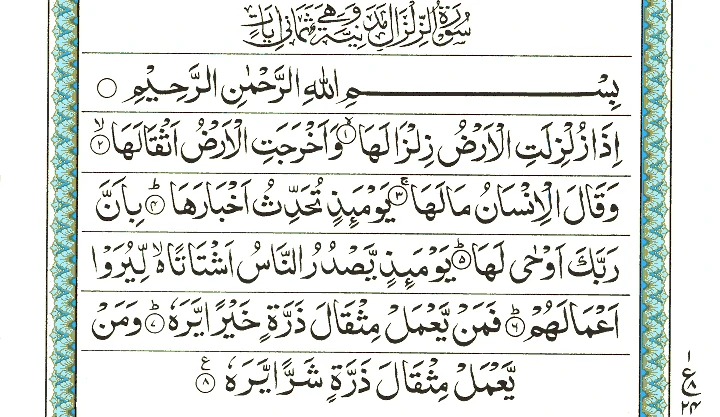 سُوْرَةُ الزِّلْزَالِ مَدَنِيَّةٌ وَّهِيَ ثَمَانِيْ اٰيَاتٍ
بِسْمِ اللّٰهِ الرَّحْمٰنِ الرَّحِيْمِ ○
اِذَا زُلْزِلَتِ الْاَرْضُ زِلْزَالَهَا ۙ﴿۱﴾ وَاَخْرَجَتِ الْاَرْضُ اَثْقَالَهَا ۙ﴿۲﴾
وَقَالَ الْاِنْسَانُ مَا لَهَا ۚ﴿۳﴾ يَوْمَىِٕذٍ تُحَدِّثُ اَخْبَارَهَا ؕ﴿۴﴾ بِاَنَّ
رَبَّكَ اَوْحٰى لَهَا ؕ﴿۵﴾ يَوْمَىِٕذٍ يَّصْدُرُ النَّاسُ اَشْتَاتًا ۙ۬ لِّيُرَوْا
اَعْمَالَهُمْ ؕ﴿۶﴾ فَمَنْ يَّعْمَلْ مِثْقَالَ ذَرَّةٍ خَيْرًا يَّرَهٗ ؕ﴿۷﴾ وَمَنْ
يَّعْمَلْ مِثْقَالَ ذَرَّةٍ شَرًّا يَّرَهٗ ﴿۸﴾ ع
۱
ع ۸
۲۴